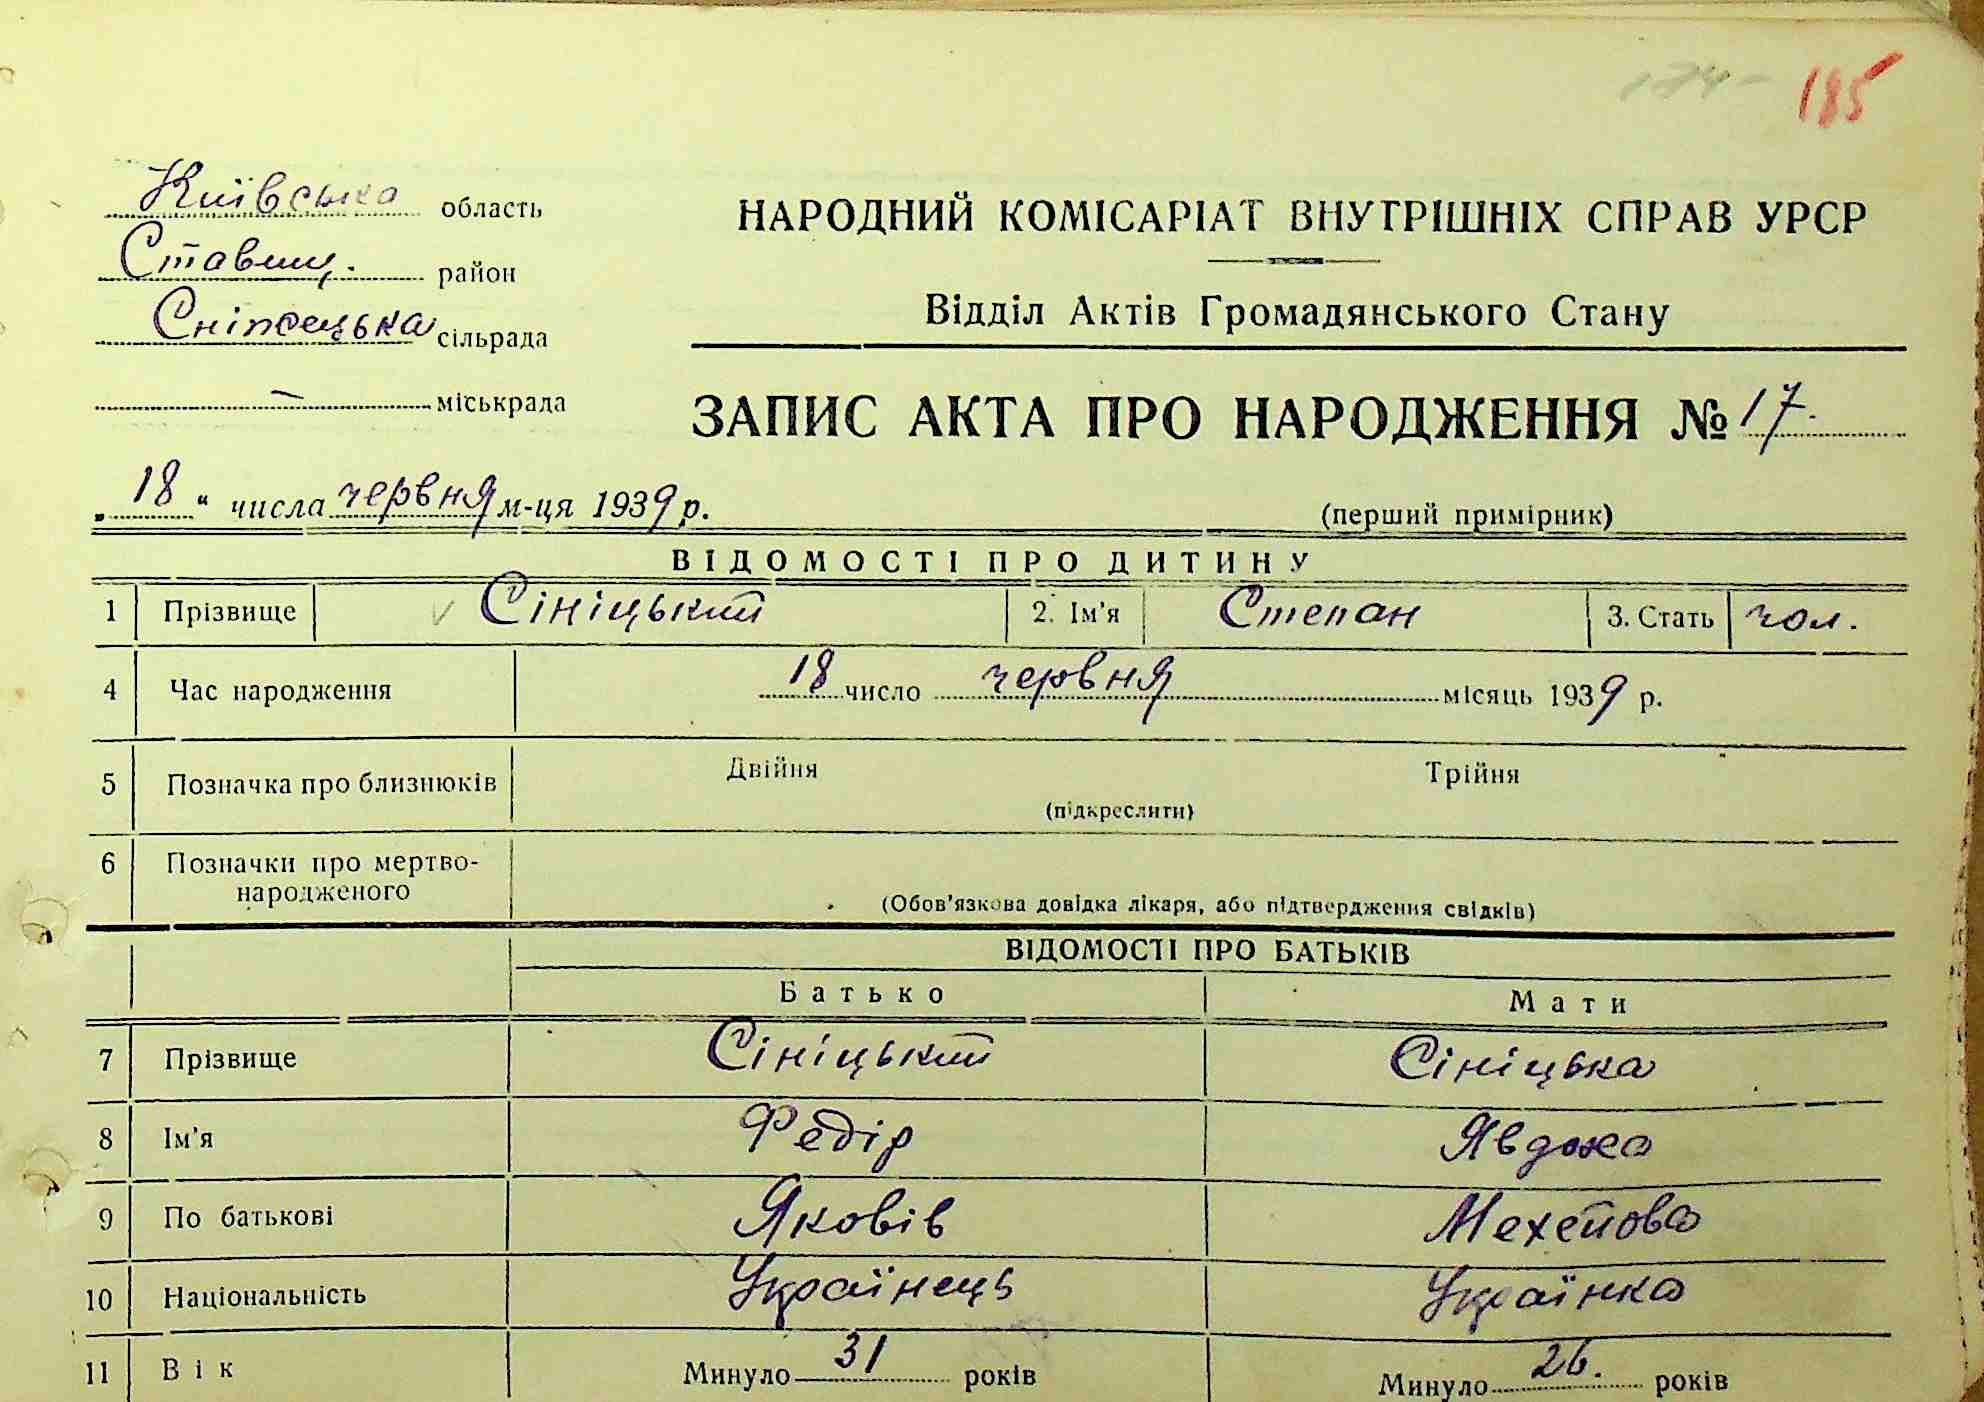 174- 185
Київська область
Ставищ. район
сільрада
— міськрада
НАРОДНИЙ КОМІСАРІАТ ВНУТРІШНІХ СПРАВ УРСР
Відділ Актів Громадянського Стану
ЗАПИС АКТА ПРО НАРОДЖЕННЯ № 17.
„18“ числа червня м-ця 1939 р.
(перший примірник)
ВІДОМОСТІ ПРО ДИТИНУ
1 Прізвище Сініцький 2. Ім'я Степан 3. Стать чол.
4 Час народження 18 число червня місяць 1939 р.
5 Позначка про близнюків Двійня Трійня
(підкреслити)
6 Позначки про мертво-
народженого
(Обов'язкова довідка лікаря, або підтвердження свідків)
ВІДОМОСТІ ПРО БАТЬКІВ
Батько Мати
7 Прізвище Сініцький Сініцька
8 Ім'я Федір Явдоха
9 По батькові Яковів Мехеїова
10 Національність Українець Українка
11 Вік Минуло 31 років Минуло 26. років